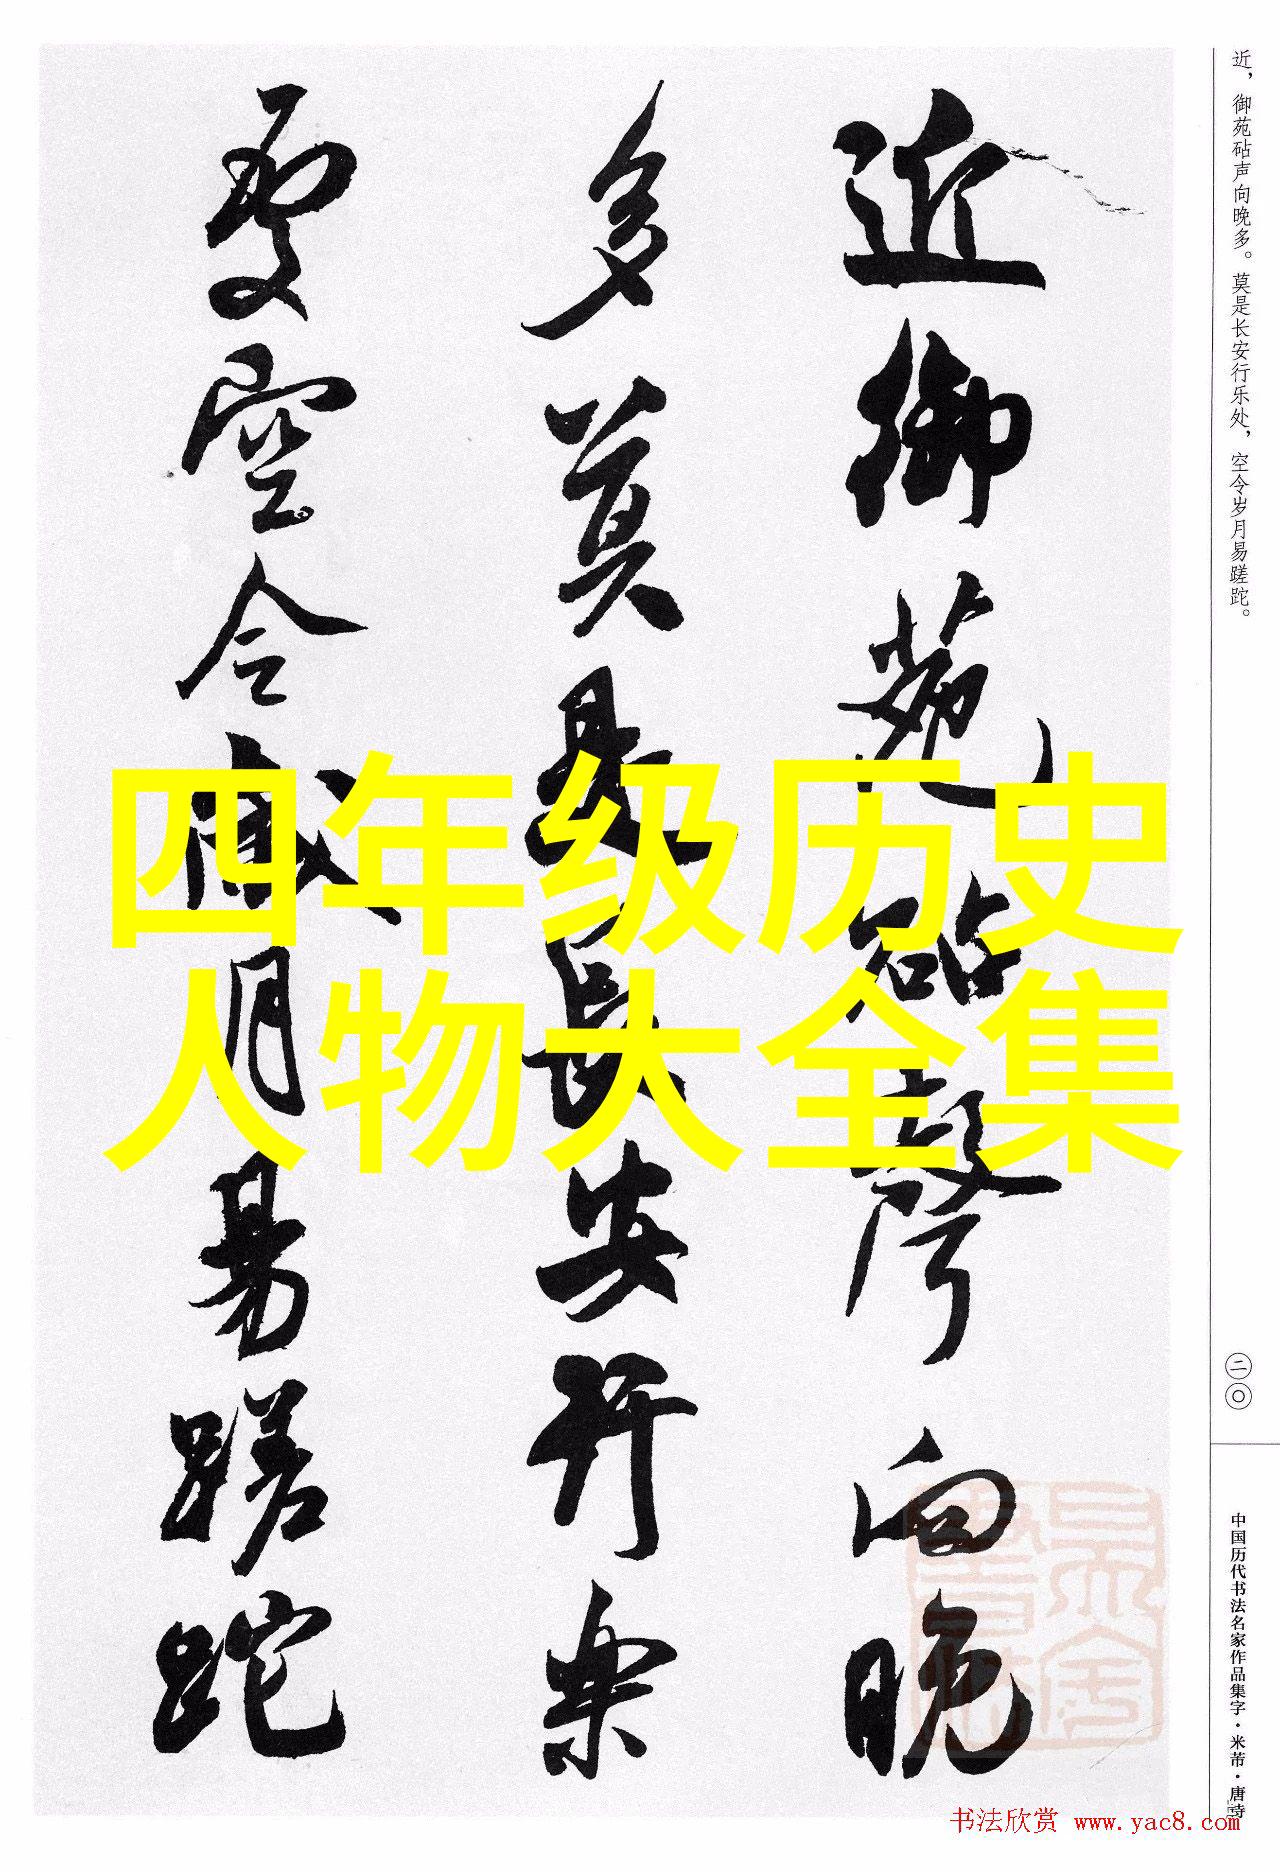 近御苑砧聲向晚
多莫是長安行樂
處空令歲月易蹉跎
近，御苑砧声向晚多。莫是长安行乐处，空令岁月易蹉跎。
二〇
中国历代书法名家作品集字·米芾·唐诗
四年级历史
人物大全集
书法欣赏 www.yac8.com